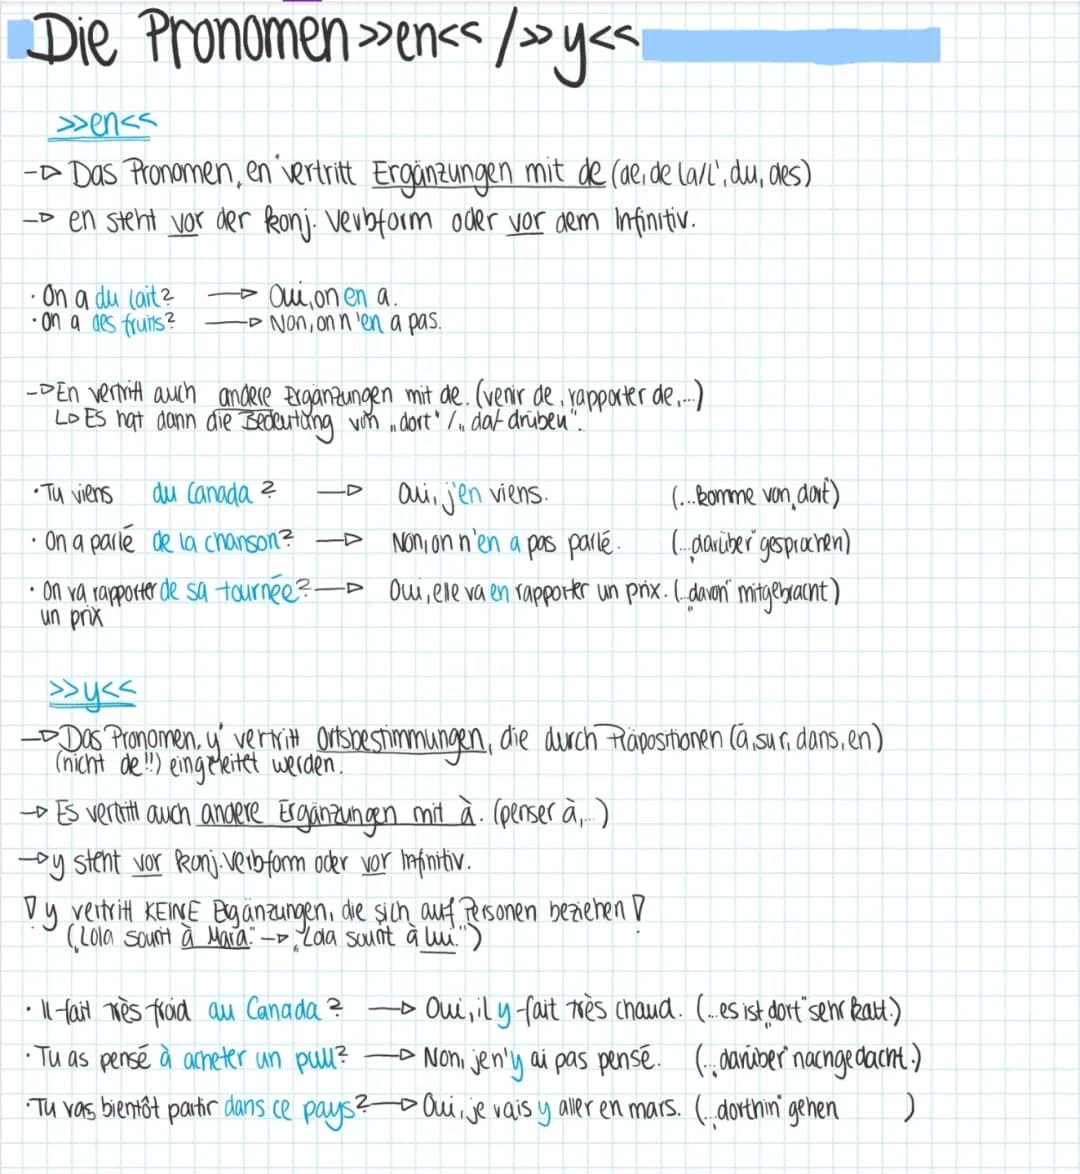 Die Pronomen >>en<< / >>y<<
>>en<<
→ Das Pronomen „en" vertritt Ergänzungen mit de (de, de la/l', du, des)
→ en steht vor der konj. Verbform oder vor dem Infinitiv.
· On a du lait? → Oui, on en a.
· On a des fruits? → Non, on n'en a pas.
→ En vertritt auch andere Ergänzungen mit de. (venir de, rapporter de,...)
↳ Es hat dann die Bedeutung von „dort" / „da drüben".
· Tu viens du Canada? → Oui, j'en viens. (...komme von „dort)
· On a parlé de la chanson? → Non, on n'en a pas parlé. (...„darüber" gesprochen)
· On va rapporter de sa tournée? → Oui, elle va en rapporter un prix. (..„davon" mitgebracht)
un prix
>>y<<
→ Das Pronomen „y" vertritt Ortsbestimmungen, die durch Präpositionen (à, sur, dans, en)
(nicht de!!) eingeleitet werden.
→ Es vertritt auch andere Ergänzungen mit à. (penser à,...)
→ y steht vor konj. Verbform oder vor Infinitiv.
! y vertritt KEINE Ergänzungen, die sich auf Personen beziehen !
(„Lola sourit à Mara." → „Lola sourit à lui.")
· Il fait très froid au Canada? → Oui, il y fait très chaud. (...es ist „dort" sehr kalt.)
· Tu as pensé à acheter un pull? → Non, je n'y ai pas pensé. (...„darüber" nachgedacht.)
· Tu vas bientôt partir dans ce pays? → Oui, je vais y aller en mars. (...„dorthin" gehen )